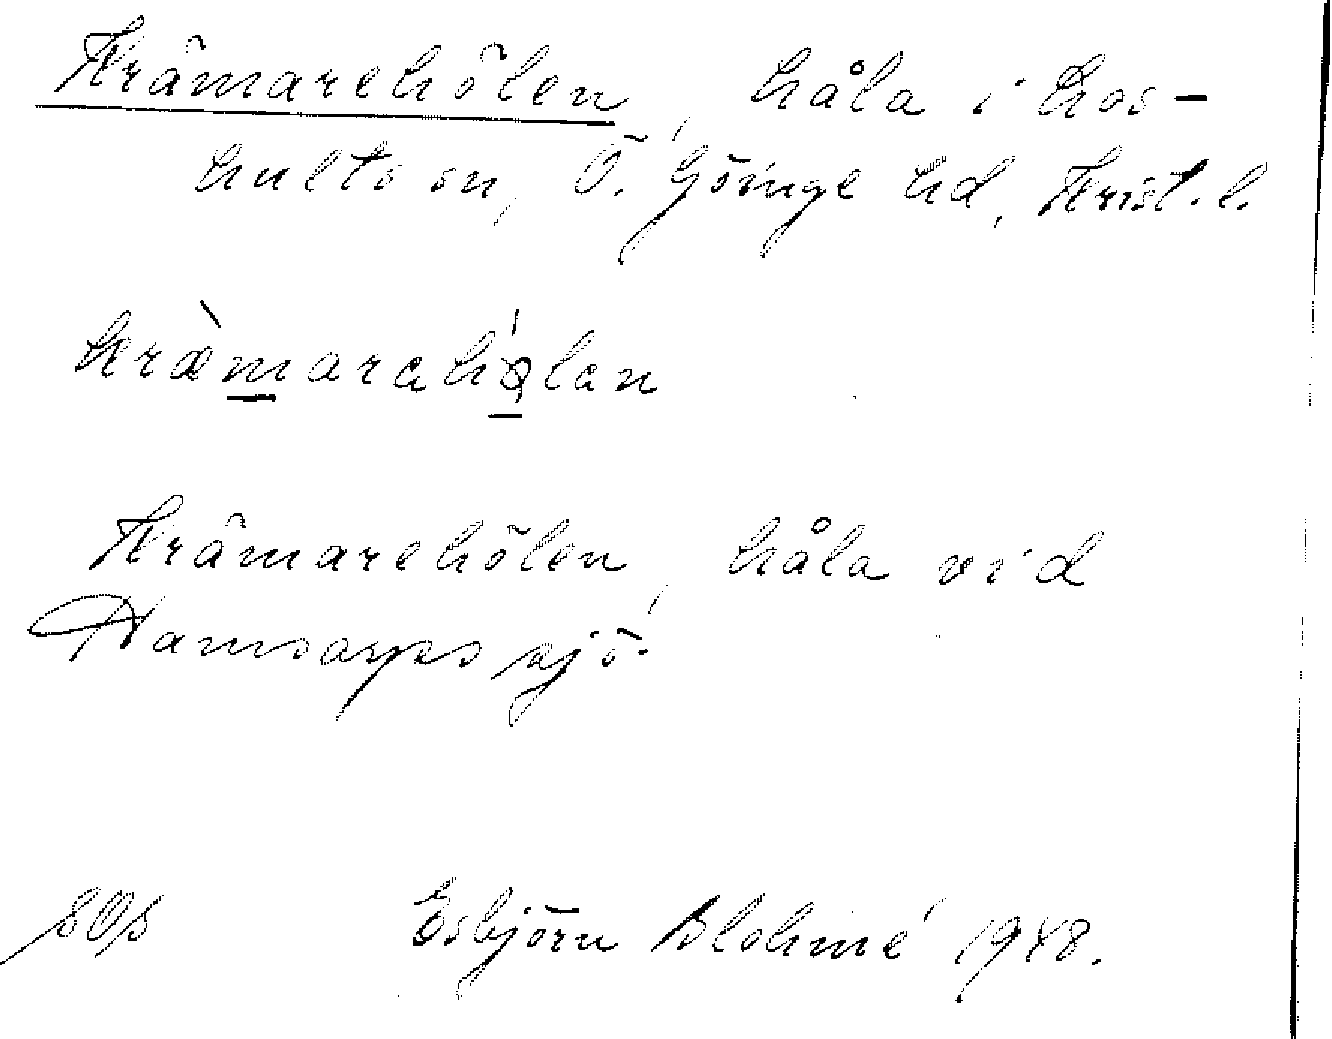 Krämarehölen, håla i Los-
hults sn, Ö. Göinge hd, Krist. l.
kræ̀marahǿlan
Krämarehölen, håla vid
Hamsarps sjö.
Esbjörn Blohmé 1948.